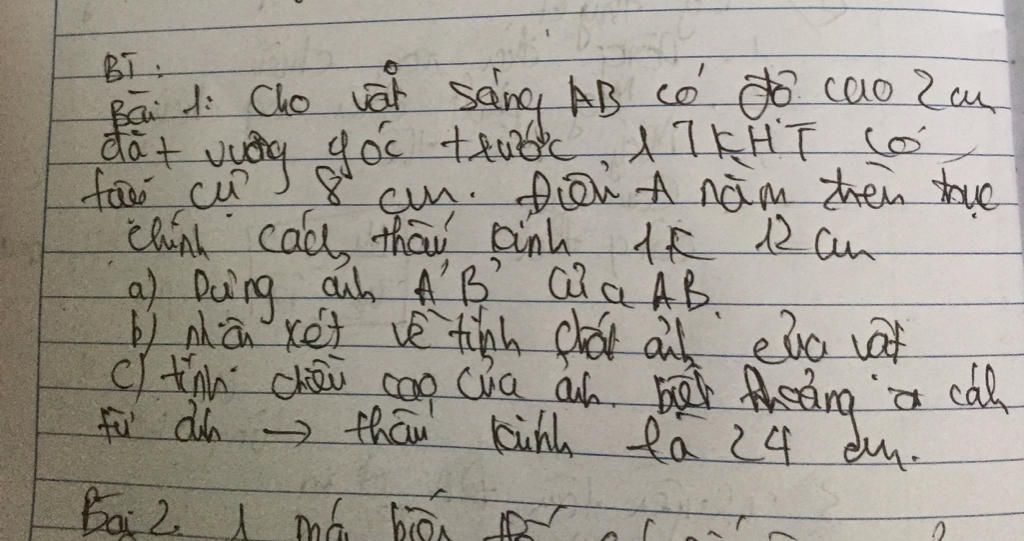 BT:
Bài 1: Cho vật sáng AB có độ cao 2 cm
đặt vuông góc trước 1 TKHT có
tiêu cự 8 cm. Điểm A nằm trên trục
chính cách thấu kính 1K 12 cm
a) Dựng ảnh A'B' của AB.
b) nhận xét về tính chất ảnh của vật
c) tính chiều cao của ảnh. biết khoảng cách
từ ảnh → thấu kính là 24 cm.
Bài 2. 1 máy biến thế